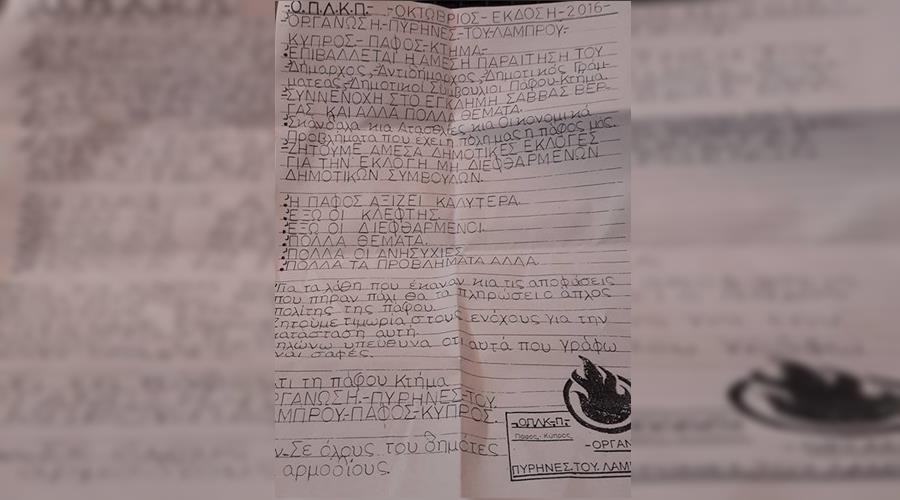 -Ο.Π.Λ.Κ.Π.- -ΟΚΤΩΒΡΙΟΣ-ΕΚΔΟΣΗ-2016-
-ΟΡΓΑΝΩΣΗ-ΠΥΡΗΝΕΣ-ΤΟΥ-ΛΑΜΠΡΟΥ-
ΚΥΠΡΟΣ-ΠΑΦΟΣ-ΚΤΗΜΑ-
ΕΠΙΒΑΛΛΕΤΑΙ Η ΑΜΕΣΗ ΠΑΡΑΙΤΗΣΗ ΤΟΥ
-Δήμαρχος-Αντιδήμαρχος-Δημοτικός Γραμ-
ματέας-Δημοτικοί Συμβούλιοι Πάφου-Κτήμα.
ΣΥΝΝΕΝΟΧΗ ΣΤΟ ΕΓΚΛΗΜΗ ΣΑΒΒΑΣ ΒΕΡ-
ΓΑΣ ΚΑΙ ΑΛΛΑ ΠΟΛΛΑ ΘΕΜΑΤΑ.
Σκάνδαλα κια Ατασθλίες κια Οικονομικά
Προβλήματα που έχειη πόλη μας η πάφος μας.
ΖΗΤΟΥΜΕ ΑΜΕΣΑ ΔΗΜΟΤΙΚΕΣ ΕΚΛΟΓΕΣ
ΓΙΑ ΤΗΝ ΕΚΛΟΓΗ ΜΗ ΔΙΕΦΘΑΡΜΕΝΩΝ
ΔΗΜΟΤΙΚΩΝ ΣΥΜΒΟΥΛΩΝ.
Η ΠΑΦΟΣ ΑΞΙΖΕΙ ΚΑΛΥΤΕΡΑ.
ΕΞΩ ΟΙ ΚΛΕΦΤΗΣ.
ΕΞΩ ΟΙ ΔΙΕΦΘΑΡΜΕΝΟΙ.
ΠΟΛΛΑ ΘΕΜΑΤΑ.
ΠΟΛΛΑ ΟΙ ΑΝΗΣΥΧΙΕΣ
ΠΟΛΛΑ ΤΑ ΠΡΟΒΛΗΜΑΤΑ ΑΛΛΑ.
Για τα λάθη που έκαναν κια τις αποφάσεις
που πήραν πάλι θα τα πληρώσει ο άπλος
πολίτης της πάφου.
ζητούμε τιμωρία στους ενόχους για την
κατάσταση αυτή.
ηλώνω υπεύθυνα οτι αυτά που γράφω
ναι σαφές.
τι τη πάφου Κτήμα
ΡΓΑΝΩΣΗ.-ΠΥΡΗΝΕΣ-ΤΟΥ
ΑΜΠΡΟΥ-ΠΑΦΟΣ-ΚΥΠΡΟΣ.
ν-Σε όλους του δημότες
αρμοδίους
-ΟΠΛΚ-Π-
Πάφος-Κύπρος
-ΟΡΓΑΝ
ΠΥΡΗΝΕΣ.ΤΟΥ.ΛΑΜ